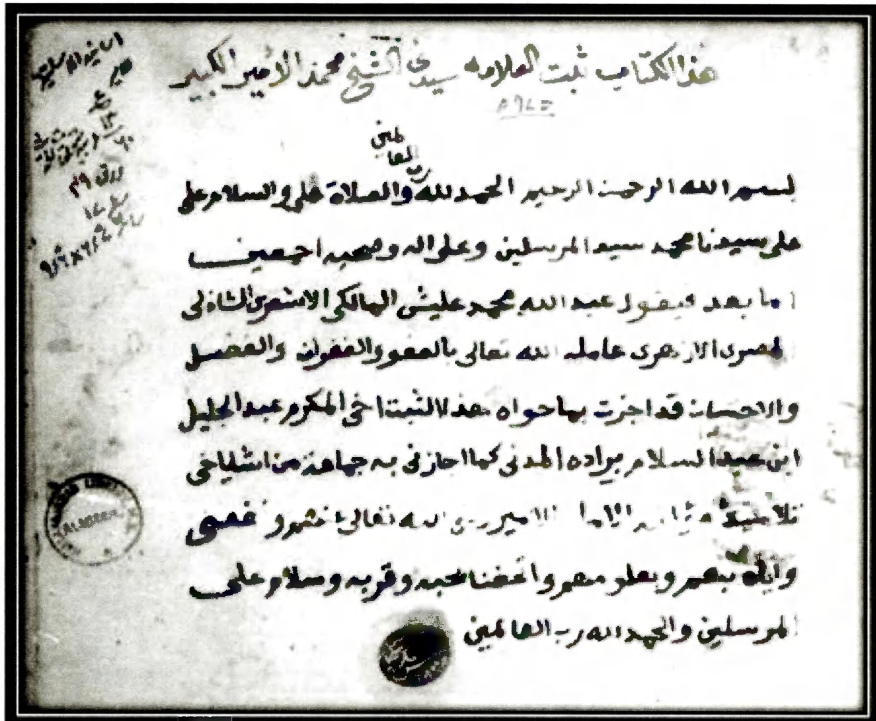 هذا الكتاب ثبت العلامه سيدى الشيخ محمد الامير الكبير
رب العالمين
بسم الله الرحمن الرحيم الحمد لله والصلاة على والسلام على
على سيدنا محمد سيد المرسلين وعلى اله وصحبه اجمعين
اما بعد فيقول عبد الله محمد عليش المالكى الاشعرى الشاذلى
المصرى الازهرى عامله الله تعالى بالعفو والغفران والفضل
والاحسان قد اجزت بما حواه هذا الثبت اخى المكرم عبد الجليل
ابن عبد السلام براده المدنى كما اجازنى به جماعة من اشياخى
تلامذة الامير الله تعالى
بهم وبعلومهم واتحفنا بحبه وقربه وسلام على
المرسلين والحمد لله رب العالمين